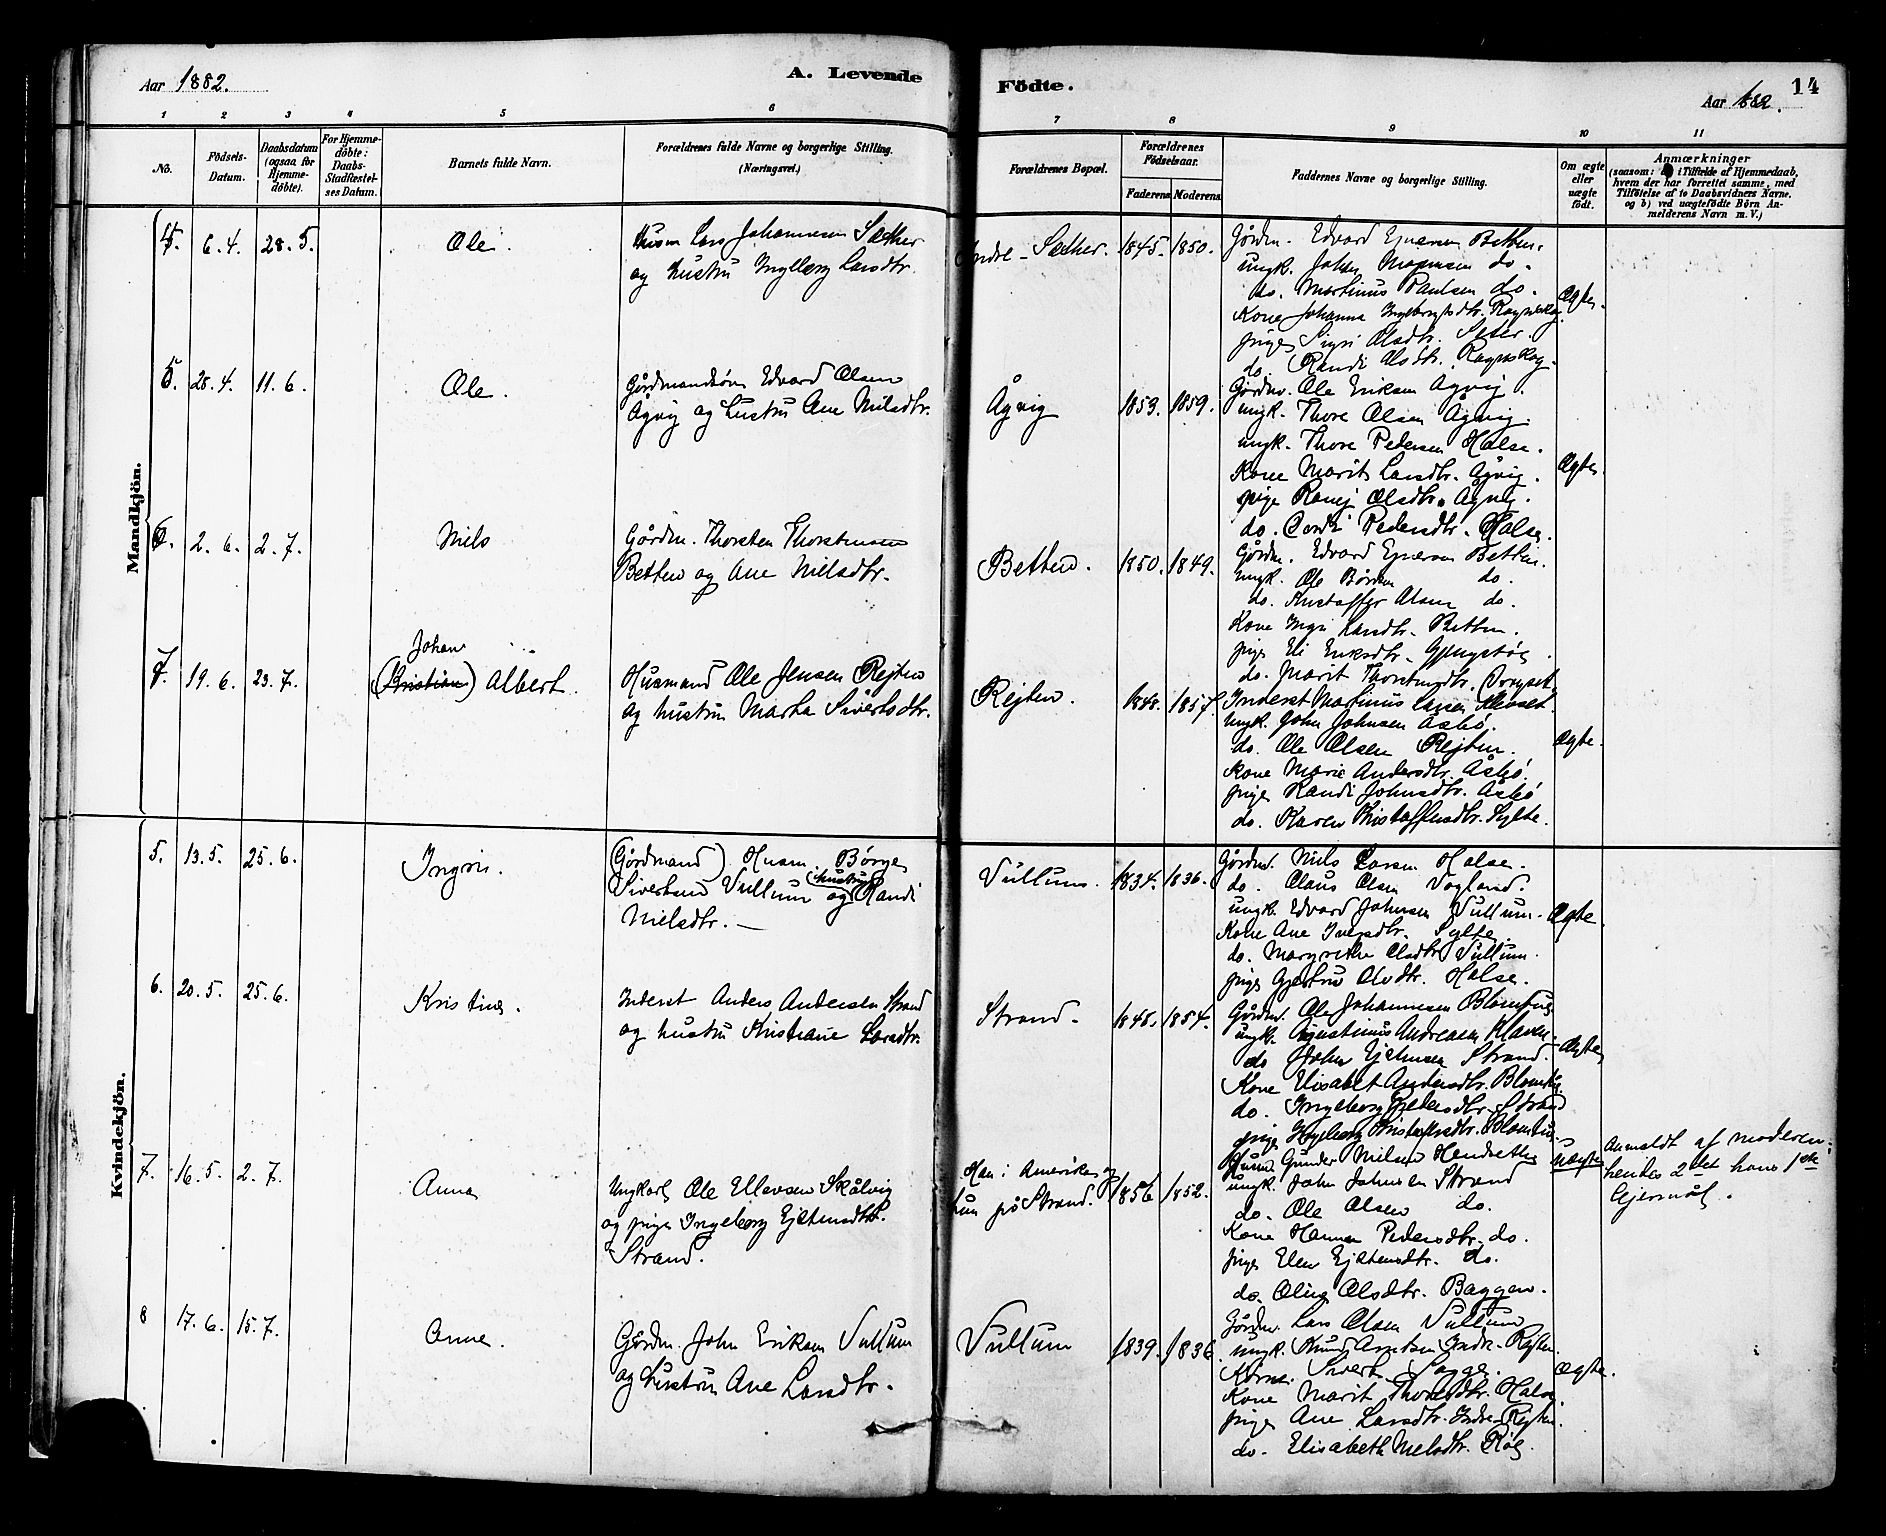 Aar 1882.
A. Levende
Födte.
14
Aar 1882.
1 2 3 4 5 6 7 8 9 10 11
No.
Födsels-
Datum.
Daabsdatum
(ogsaa for
Hjemme-
döbte).
For Hjemme-
döbte:
Daabs-
Stadfæstel-
ses Datum.
Barnets fulde Navn.
Forældrenes fulde Navne og borgerlige Stilling.
(Næringsvei.)
Forældrenes Bopæl.
Forældrenes
Födselsaar.
Faderens Moderens
Faddernes Navne og borgerlige Stilling.
Om ægte
eller
uægte
födt.
Anmærkninger
(saasom: a) i Tilfælde af Hjemmedaab,
hvem der har forrettet samme, med
Tilföielse af to Daabsvidners Navne,
og b) ved uægtefödte Börn An-
melderens Navn m. V.)
Mandkjön.
4. 6.4. 28.5. Ole.
Husm Lars Johannesen Sæther
og hustru Ingeborg Larsdtr.
Indre-Sæther. 1845. 1850.
Gårdm. Edvard Ejnersen Betten.
ungk. Johan Mogensen do.
do. Martinus Paulsen do.
Kone Johanna Ingebrigtsdtr.
pige Sigri Olsdtr. Seter
do. Randi Olsdtr. Rognskog.
Ægte.
5. 28.4. 11.6. Ole.
Gårdmandsøn Edvard Olsen
Ågvig og hustru Ane Nilsdtr.
Ågvig 1853. 1859.
Gårdm. Ole Eriksen Ågvig.
ungk. Thore Olsen Ågvig.
ungk. Thore Pedersen Halse.
Kone Marit Larsdtr. Ågvig.
pige Olsdtr. Ågvig.
do. Pedersdtr. Halse.
Ægte
6. 2.6. 2.7. Nils
Gårdm. Thorsten Thorstensen
Betten og Ane Nielsdtr.
Betten. 1850. 1849.
Gårdm. Edvard Ejnersen Betten.
ungk. Ole do.
do. Kristoffer Olsen do.
Kone Ingri Larsdtr. Betten.
pige Eli Eriksdtr.
do. Marit Thorstensdtr.
7. 19.6. 23.7. Johan
(Kristian) Albert.
Husmand Ole Jensen Rejten
og hustru Marta Sivertsdtr.
Rejten. 1848. 1857.
Inderst Martinus Larsen
ungk. John Johnsen Åsbø.
do. Ole Olsen Rejten.
Kone Marie Andersdtr. Åsbø.
pige Randi Johnsdtr. Åsbø
do. Karen Kristoffersdtr. Sylte.
Ægte.
Kvindekjön.
5. 13.5. 25.6. Ingri.
(Gårdmand) Husm. Børge
Sivertsen Vullum og (hustru) Randi
Nielsdtr. —
Vullum. 1834. 1836.
Gårdm. Nils Larsen Halse.
do. Claus Olsen Vogland.
ungk. Edvard Johnsen Vullum.
Kone Ane Iversdtr. Sylte
do. Margrethe Olsdtr. Vullum.
pige Gjertru Olsdtr. Halse.
Ægte
6. 20.5. 25.6. Kristine.
Inderst Anders Andersen Strand
og hustru Kristiane Larsdtr.
Strand. 1848. 1854.
Gårdm. Ole Johannesen
ungk. Andreasen
do John Ejelmsen Strand.
Kone Elisabet Andersdtr.
do. Ingeborg Pedersdtr. Strand
pige Ingeborg Kristoffersdtr.
Ægte
7. 16.5. 2.7. Anna
Ungkarl Ole Ellevsen Skålvig
og pige Ingeborg Ejelmsdtr.
Strand.
Han i Amerika og
hun på Strand. 1856. 1852.
Husm. Gunder Nilsen
ungk. John Johnsen Strand
do. Ole Olsen do.
Kone Hanna Pedersdtr. do.
pige Elen Ejelmsdtr. do.
do. Oline Olsdtr. Baggen.
Uægte
Anmeldt af moderen;
hendes 2det hans 1ste
lejermål.
8 17.6. 15.7. Anne.
Gårdm. John Eriksen Vullum
og hustru Ane Larsdtr.
Vullum 1839. 1836.
Gårdm. Lars Olsen Vullum
ungk. Knud Arntsen Indr. Rejten
Sivert
Kone Marit Thoresdtr. Halse.
pige Ane Larsdtr. Indre-Rejten.
do. Elisabeth Nielsdtr.
Ægte.